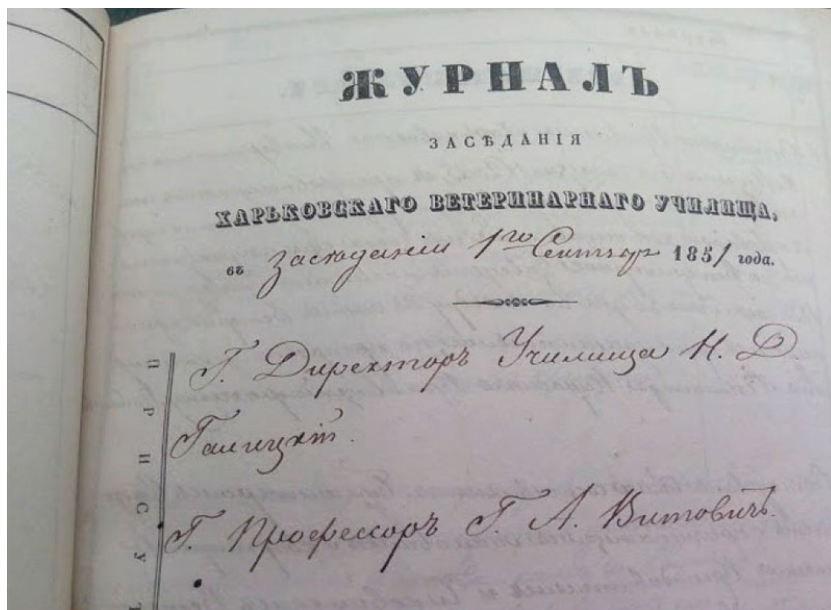 ЖУРНАЛЪ
ЗАСѢДАНІЯ
ХАРЬКОВСКАГО ВЕТЕРИНАРНАГО УЧИЛИЩА,
въ засѣданіи 1го Сентяб 1851 года.
П Р И С У Т
Г. Директоръ Училища Н. Д.
Галицкій.
Г. Профессоръ Г. А. Витовичъ.